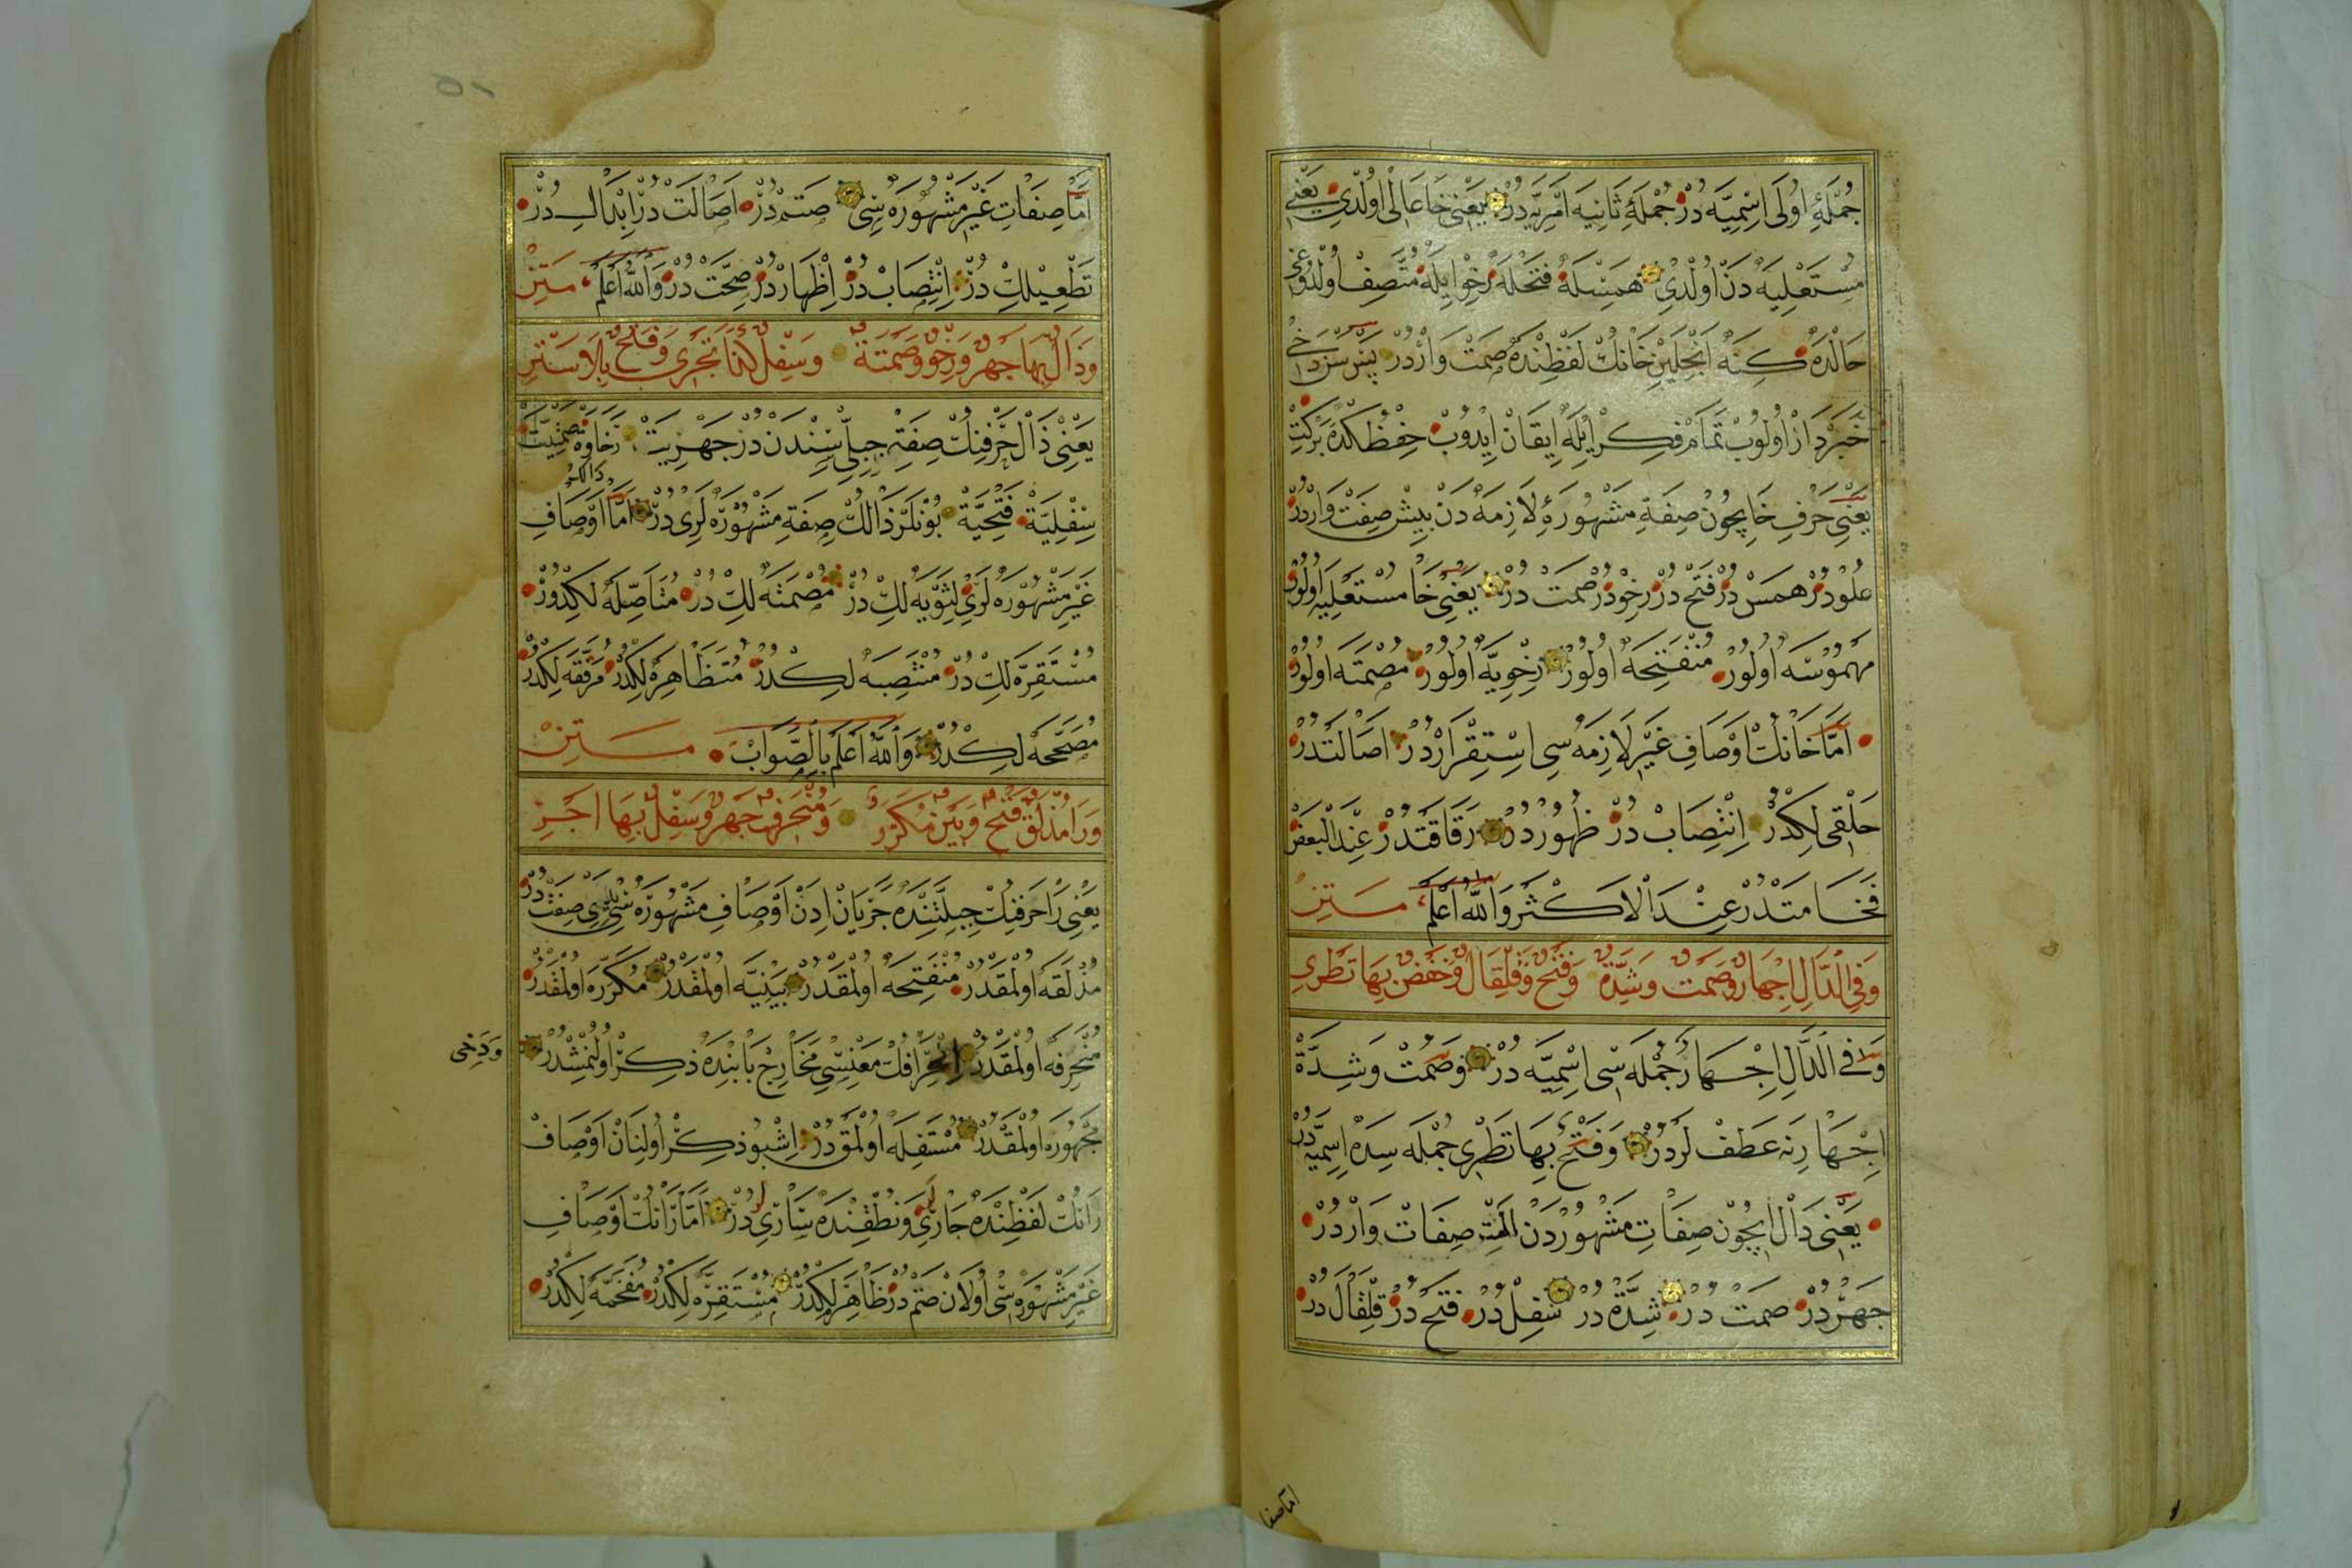 جُمْلَۀِ اُولَى اِسْمِيَّه دُرْ جُمْلَۀِ ثَانِيَه اَمْرِيَّه دُرْ يَعْنِى خَا عَالْى اُولْدِى يَعْنِى
مُسْتَعْلِيَه دَنْ اُولْدِى هَمْسْلَه فَتْحْلَه رِخْو اِيلَه مُتَّصِفْ اُولْدُوغِى
حَالْدَه كِنَه اَنْجِلَيِنْ خَانُكْ لَفْظِنْدَه صَمْتْ وَارْدُرْ پَسْ سَنْ دَخِى
خَبَرْدَارْ اُولُوبْ تَمَامْ فِكِرْ اِيلَه اِيقَانْ اِيدُوبْ حِفْظْ
يَعْنِى حَرْفِ خَا اِيچُونْ صِفَةِ مَشْهُورَۀِ لَازِمَه دَنْ بِيشْ صِفَتْ وَارْدُرْ
عُلُودُرْ هَمْسْ دُرْ فَتْحْ دُرْ رِخْودُرْ صَمْتْ دُرْ يَعْنِى خَا مُسْتَعْلِيَه اُولُورْ
مَهْمُوسَه اُولُورْ مُنْفَتِحَه اُولُورْ رِخْوِيَّه اُولُورْ مُصْمَتَه اُولُورْ
اَمَّا خَانُكْ اَوْصَافِ غَيْرِ لَازِمَه سِى اِسْتِقْرَارْدُرْ اَصَالَتْدُرْ
حَلْقِى لِكْدُرْ اِنْتِصَابْ دُرْ ظُهُورْ دُرْ رَقَاقَتْدُرْ عِنْدَ الْبَعْضْ
فَخَامَتْدُرْ عِنْدَ الْاَكْثَرْ وَاللهُ اَعْلَمُ مَتِنْ
وَفِى الدَّالِ اِجْهَارٌ وَصَمْتٌ وَشِدَّةٌ وَفَتْحٌ وَقِلْقَالٌ وَخَفْضٌ بِهَا تَطْرِى
وَفِى الدَّالِ اِجْهَارٌ جُمْلَه سِى اِسْمِيَّه دُرْ وَصَمْتْ وَشِدَّةْ
اِجْهَارِنَه عَطَفْ لَرْدُرْ وَفَتْحٌ بِهَا تَطْرِى جُمْلَه سِدَه اِسْمِيَّه دُرْ
يَعْنِى دَالْ اِيچُونْ صِفَاتِ مَشْهُورْدَنْ اَلْتِى صِفَاتْ وَارْدُرْ
جَهْرْدُرْ صَمْتْ دُرْ شِدَّةْ دُرْ سَفِلْ دُرْ فَتْحْ دُرْ قِلْقَالْ دُرْ
اما صفا
اَمَّا صِفَاتِ غَيْرِ مَشْهُورَه سِى صَتْمْ دُرْ اَصَالَتْ دُرْ اِبْدَالْ دُرْ
دُرْ اِنْتِصَابْ دُرْ اِظْهَارْ دُرْ صِحَّتْ دُرْ وَاللهُ اَعْلَمُ مَتِنْ
وَذَالٌ بِهَا جَهْرٌ وَرِخْوٌ وَصَمْتَةٌ وَسِفْلٌ كَذَا تَجْرِى وَفَتْحٌ بِلَا سَتْرِ
يَعْنِى ذَالْ حَرْفِنُكْ صِفَتِ جِبِلِّيْ سِنْدَنْ دُرْ جَهْرِيَتْ رَخَاوَه
سِفْلِيَّةْ فَتْحِيَّةْ بُونْلَرْ ذَالُكْ صِفَةِ مَشْهُورَه لَرِى دُرْ اَمَّا اَوْصَافِ
غَيْرِ مَشْهُورَه لَرِى لِثَوِيَّه لِكْ دُرْ مُصْمَتَه لِكْ دُرْ مُتَأَصِّلَه لِكْدُورْ
مُسْتَقِرَّه لِكْ دُرْ مُنْتَصِبَه لِكْدُرْ مُتَظَاهِرَه لِكْدُرْ مُرَقَّقَه لِكْدُرْ
مُصَحَّحَه لِكْدُرْ وَاللهُ اَعْلَمُ بِالصَّوَابْ مَتِنْ
وَرَا مُذْلَقٌ فَتْحٌ وَبَيْنٌ مُكَرَّرٌ وَمُنْحَرِفٌ جَهْرٌ وَسِفْلٌ بِهَا اجْرِ
يَعْنِى رَا حَرْفِنُكْ جِبِلَّتِنْدَه جَرَيَانْ اِدَنْ اَوْصَافِ مَشْهُورَه سِى يِدِى صِفَتْ دُرْ
مُذْلَقَه اُولْمَقْدُرْ مُنْفَتِحَه اُولْمَقْدُرْ بَيْنِيَّه اُولْمَقْدُرْ مُكَرَّرَه اُولْمَقْدُرْ
مُنْحَرِفَه اُولْمَقْدُرْ اِنْحِرَافُكْ مَعْنِسِى مَخَارِجْ بَابِنْدَه ذِكِرْ اُولُنْمِشْدُرْ
وَدَخِى
مَجْهُورَه اُولْمَقْدُرْ مُسْتَفِلَه اُولْمَقْ دُرْ اِشْبُو ذِكِرْ اُولِنَانْ اَوْصَافْ
رَانُكْ لَفْظِنْدَه جَارِى وَنُطْقِنْدَه سَارِى دُرْ اَمَّا رَانُكْ اَوْصَافِ
غَيْرِ مَشْهُورَه سِى اُولَانْ صَتْمْ دُرْ ظَاهِرَه لِكْدُرْ مُسْتَقِرَّه لِكْدُرْ مُفَخَّمَه لِكْدُرْ